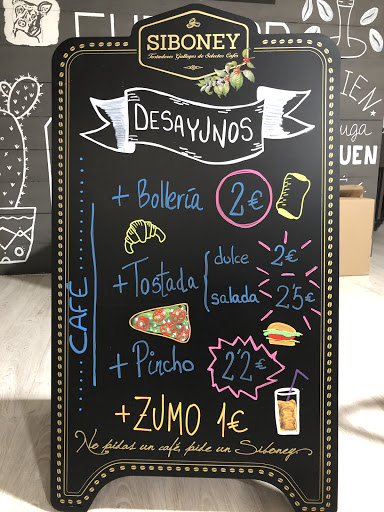 SIBONEY
Tostadores Gallegos de Selectos Cafés
DESAYUNOS
CAFÉ
+ Bollería 2€
+ Tostada
dulce 2€
salada 2'5€
+ Pincho 2'2€
+ ZUMO 1€
No pidas un café, pide un Siboney
IEN
uga
UEN